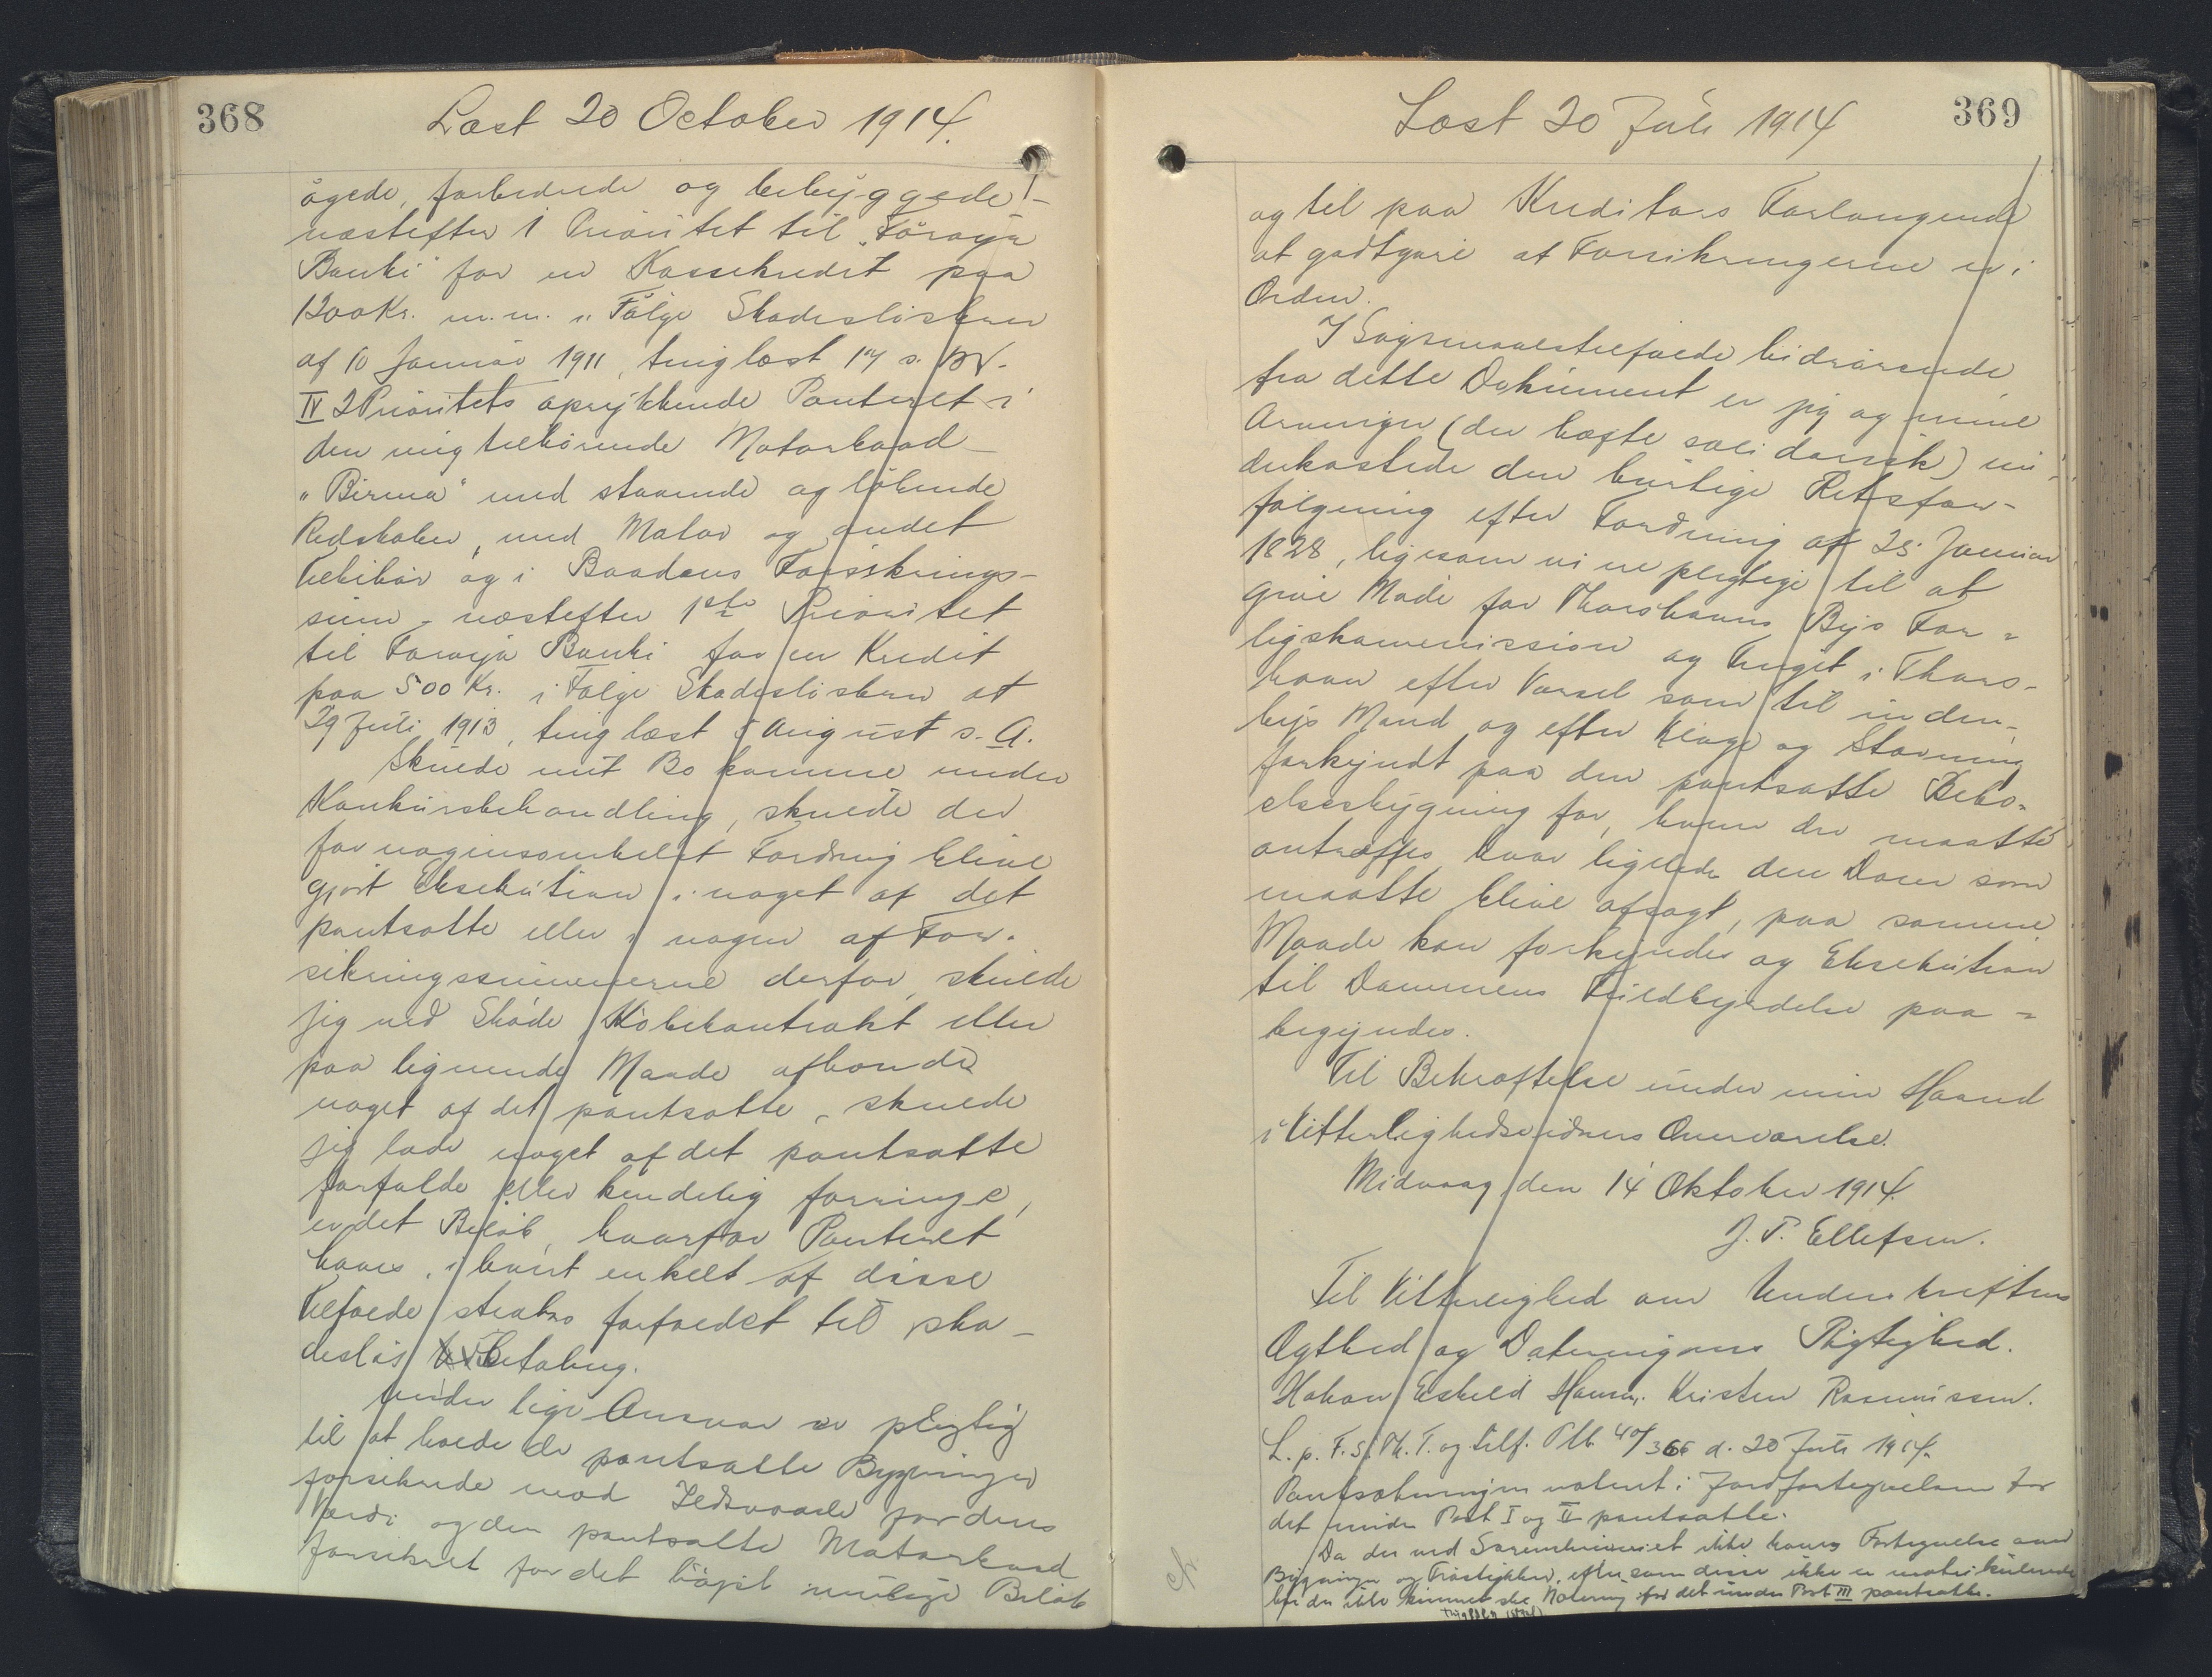 368
Læst 20 October 1914.
øgede, forbedrede og bebyggede! -
næstefter 1 Prioritet til "Føroya
Banki" for en Kassekredit paa
1200 Kr. m.m. i Følge Skadesløsbrev
af 10 Januar 1911, tinglæst 17 s. M.
IV 2 Prioritets oprykkende Panteret i
den mig tilhørende Motorbaad
"Birma" med staaende og løbende
Redskaber, med Motor og andet
Tilbehør og i Baadens Forsikrings-
sum - næstefter 1ste Prioritet
til Føroya Banki for en Kredit
paa 500 Kr. i Følge Skadesløsbrev af
29 Juli 1913, tinglæst 5 August s. A.
Skulde mit Bo komme under
Konkursbehandling, skulde der
for nogensomhelst Fordring blive
gjort Eksekution i noget af det
pantsatte eller i nogen af For-
sikringssummerne derfor, skulde
jeg ved Skøde, Købekontrakt eller
paa lignende Maade afhænde
noget af det pantsatte, skulde
jeg lade noget af det pantsatte
forfalde eller kendelig forringe,
er det Beløb, hvorfor Panteret
haves, i hvert enkelt af disse
Tilfælde straks forfaldet til ska-
desløs Betaling.
Under lige Ansvar er pligtig
til at holde de pantsatte Bygninger
forsikrede mod Ildsvaade for deres
Værdi og den pantsatte Motorbaad
forsikret for det højst mulige Beløb
369
Læst 20 Juli 1914
og til paa Kreditors Forlangende
at godtgøre at Forsikringerne er i
Orden.
I Søgsmaalstilfælde hidrørende
fra dette Dokument er jeg og mine
Arvinger (der hæfte solidarisk) un-
derkastede den hurtige Retsfor-
følgning efter Fordning af 25 Januar
1828, ligesom vi ere pligtige til at
give Møde for Thorshavns Bys For-
ligskommission og Tinget i Thors-
havn efter Varsel som til inden-
bys Mand og efter Klage og Stævning
forkyndt paa den pantsatte Bebo-
elsesbygning for, hvem der maatte
antræffes hvor ligeledes den Dom som
maatte blive afsagt, paa samme
Maade kan forkyndes og Eksekution
til Dommens Fuldbyrdelse paa-
begyndes.
Til Bekræftelse under min Haand
i Vitterlighedsvidners Overværelse.
Midvaag den 14 Oktober 1914.
J. P. Ellefsen.
Til Vitterlighed om Underskriftens
Ægthed og Dateringens Rigtighed.
Hakon Eskild Hansen. Kristen Rasmussen.
L. p. F. S. Th. T. og tilf. Plb. 40/366 d. 20 Juli 1914.
Pantsætningen noteret i Jordfortegnelsen for
det under Post I og II pantsatte.
Da der ved Sorenskriveriet ikke haves Fortegnelse over
Bygninger og Træstykker, eftersom disse ikke er matrikulerede
har der ikke kunnet ske Notering for det under Post III pantsatte.